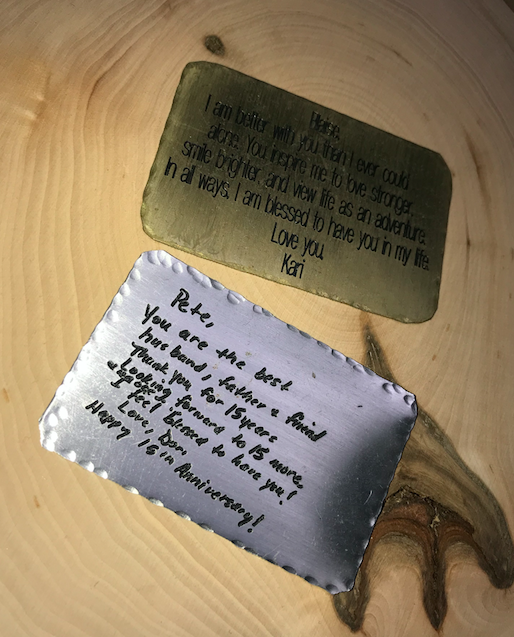 Blaise,
I am better with you than I ever could
alone. You inspire me to love stronger,
smile brighter, and view life as an adventure.
In all ways, I am blessed to have you in my life.
Love you,
Kari
Pete,
You are the best
husband, father & friend
Thank you for 15 years
Looking forward to 15 more.
I feel blessed to have you!
Love, Dori
Happy 15th Anniversary!